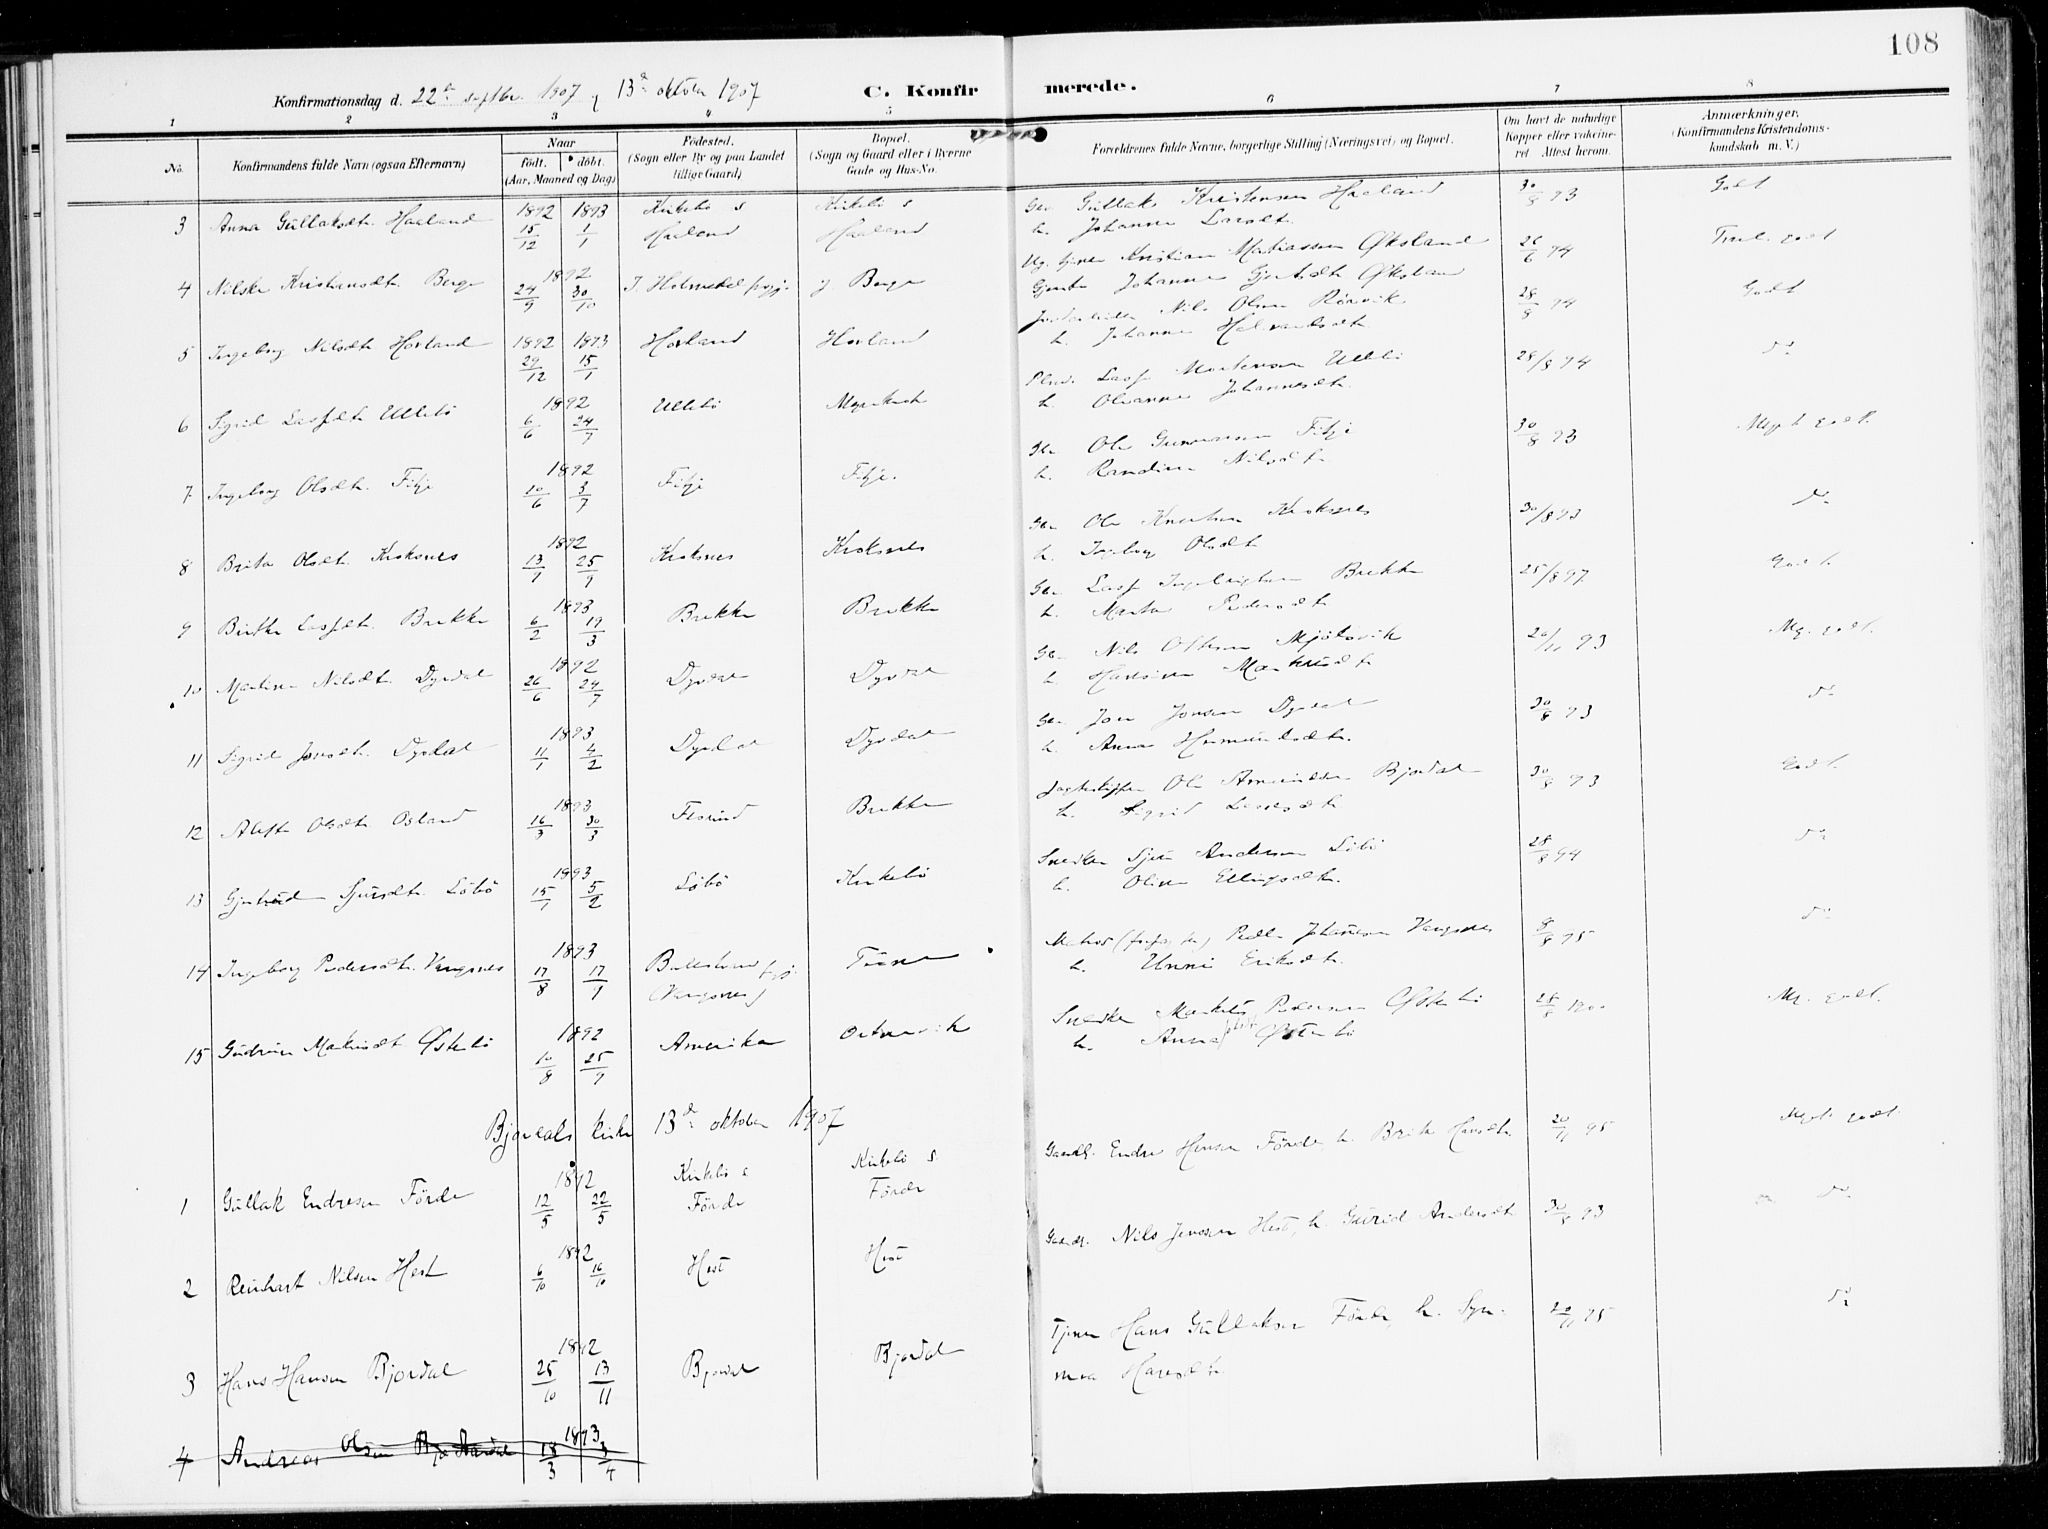 108
Konfirmationsdag d. 22de septbr. 1907 og 13de oktober 1907 C. Konfirmerede.
1 2 3 4 5 6 7 8
No. Konfirmandens fulde Navn (ogsaa Efternavn) Naar födt. döbt. (Aar, Maaned og Dag) Födested. (Sogn eller By og paa Landet tillige Gaard) Bopæl. (Sogn og Gaard eller i Byerne Gade og Hus-No. Forældrenes fulde Navne, borgerlige Stilling (Næringsvei) og Bopæl. Om havt de naturlige Kopper eller vakcineret Attest herom. Anmærkninger. (Konfirmandens Kristendomskundskab m. V.)
3 Anna Gullaksdtr. Haaland 1892 15/12 1893 1/1 Kirkebö s Haaland Kirkebö s Haaland Gullak Kristensen Haaland h. Johanne Larsdt. 30/8 93 Godt
4 Nilske Kristiansdtr. Berge 1892 24/9 30/10 Berge Kristian Mathiassen Öksland Johanne Gjertsdt Öksland 26/6 94
5 Ingeborg Nilsdtr Hovland 1892 29/12 1893 15/1 Hovland Hovland Nils Olsen Rörvik h. Johanne Halvardsdtr 28/8 94 Godt
6 Sigrid Lassesdtr Ullebö 1892 6/6 24/7 Ullebö Lasse Mortensen Ullebö h. Olianne Johannesdt. 28/8 94 do
7 Ingeborg Olsdtr. Fitje 1892 10/6 3/7 Fitje Fitje. Ole Gunnarsen Fitje h. Randine Nilsdtr 30/8 93 Meget godt.
8 Brita Olsdtr. Kroksnes 1892 13/9 25/9 Kroksnes Kroksnes Ole Knutsen Kroksnes h. Ingeborg Olsdtr 30/8 93 do
9 Birthe Lassesdtr. Brekke 1893 6/2 19/3 Brekke Brekke Lasse Ingebrigtsen Brekke h. Marta Pedersdtr 25/8 97 Godt
10 Martine Nilsdtr. Dyrdal 1892 26/6 24/7 Dyrdal Dyrdal Nils Olsen Mjölsvik h. Hansine Markusdtr 20/11 93 Mg. godt.
11 Sigrid Jonsdtr. Dyrdal 1893 11/1 4/2 Dyrdal Dyrdal Jon Jonsen Dyrdal h. Anna Hermundsdtr. 30/8 93 do
12 Olsdtr. Osland 1893 16/3 30/3 Brekke Ole Amundsen Bjordal h. Sigrid Larsdtr 30/8 93 Godt.
13 Gjertrud Sjursdtr. Löbö 1893 15/1 5/2 Löbö Kirkebö Snedker Sjur Andersen Löbö h. Oline Ellingsdtr. 28/8 94 do
14 Ingeborg Pedersdtr. Vangsnes 1893 17/8 17/9 Balestrand (Vangsnes) Matros Peder Johannesen Vangsnes h. Unni Eriksdtr. 8/8 95 do
15 Gudrun Markusdt Österbö 1892 10/8 25/9 Amerika Ortnevik Snedker Markus Pedersen Österbö h. Anna Österbö 28/8 1900 Mg. godt.
Bjordals kirke 13de oktober 1907
1 Gullak Endresen Förde 1892 12/5 22/5 Kirkebö s Förde Kirkebö s. Förde Gaardbr. Endre Hansen Förde, h. Brita Hansdtr. 20/11 95 Meget godt.
2 Reinhart Nilsen Hest 1892 6/10 16/10 Hest Hest Gaardbr. Nils Jensen Hest, h. Gurid Andersdt 30/8 93 do
3 Hans Hansen Bjordal 1892 25/10 13/11 Bjordal Bjordal Tjener Hans Gullaksen Förde, h. Synneva Hansdtr. 20/11 95 do
4 Andreas Olsen 1893 18/3 3/4